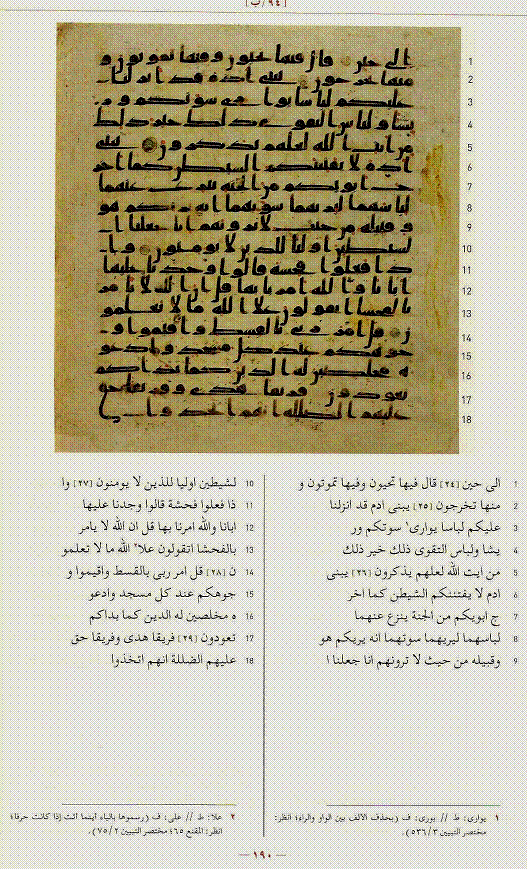 [٩٤/ب]
1 الى حين [٢٤] قال فيها تحيون وفيها تموتون و
2 منها تخرجون [٢٥] يبنى ادم قد انزلنا
3 عليكم لباسا يوارى١ سوتكم ور
4 يشا ولباس التقوى ذلك خير ذلك
5 من ايت الله لعلهم يذكرون [٢٦] يبنى
6 ادم لا يفتننكم الشيطن كما اخر
7 ج ابويكم من الجنة ينزع عنهما
8 لباسهما ليريهما سوتهما انه يريكم هو
9 وقبيله من حيث لا ترونهم انا جعلنا ا
10 لشيطين اوليا للذين لا يومنون [٢٧] وا
11 ذا فعلوا فحشة قالوا وجدنا عليها
12 ابانا والله امرنا بها قل ان الله لا يامر
13 بالفحشا اتقولون علا٢ الله ما لا تعلمو
14 ن [٢٨] قل امر ربى بالقسط واقيموا و
15 جوهكم عند كل مسجد وادعو
16 ه مخلصين له الدين كما بداكم
17 تعودون [٢٩] فريقا هدى وفريقا حق
18 عليهم الضللة انهم اتخذوا
١ يوارى: ط // يورى: ف (بحذف الألف بين الواو والراء؛ انظر:
مختصر التبيين ٣/ ٥٣٦).
٢ علا: ط // على: ف (رسموها بالياء أينما أتت إذا كانت حرفا؛
انظر: المقنع ٦٥؛ مختصر التبيين ٢/ ٧٥).
— ١٩٠ —